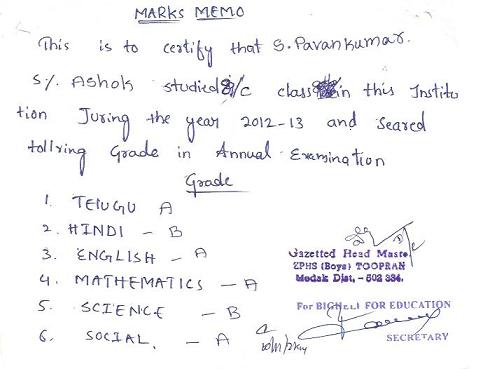 MARKS MEMO
This is to certify that S. Pavankumar.
S/. Ashok studied 8/C class in this Institu
tion Juring the year 2012-13 and Seared
tollring Grade in Annual Examination
Grade
1. TELUGU A
2. HINDI - B
3. ENGLISH - A
4. MATHEMATICS - A
5. SCIENCE - B
6. SOCIAL. - A
Gazetted Head Maste
ZPHS (Boys) TOOPRAN
Medak Dist, - 502 334.
For BIGHELP FOR EDUCATION
SECRETARY